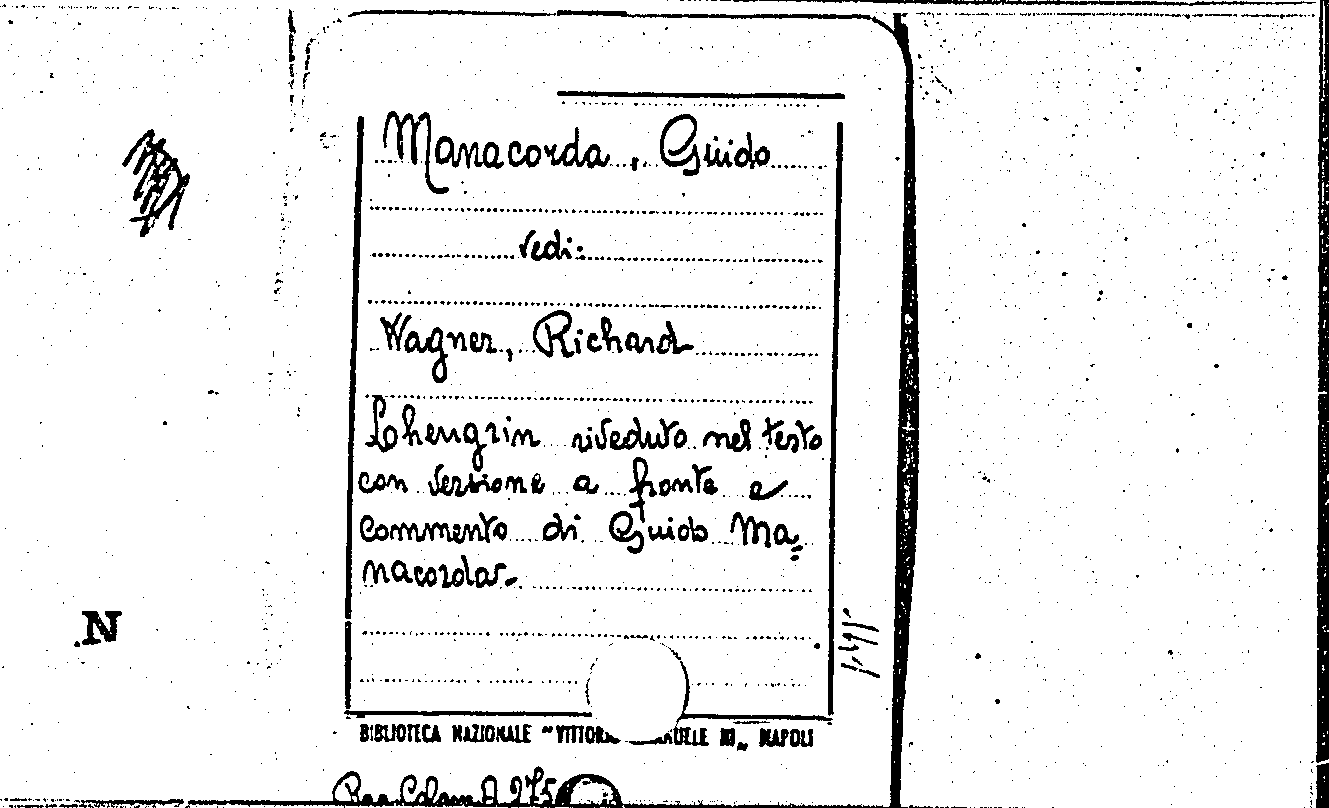 Manacorda, Guido
Vedi:
Wagner, Richard
Lohengrin riveduto nel testo
con versione a fronte e
commento di Guido Ma=
nacorda.
N
BIBLIOTECA NAZIONALE "VITTORIO EMANUELE III" NAPOLI
275